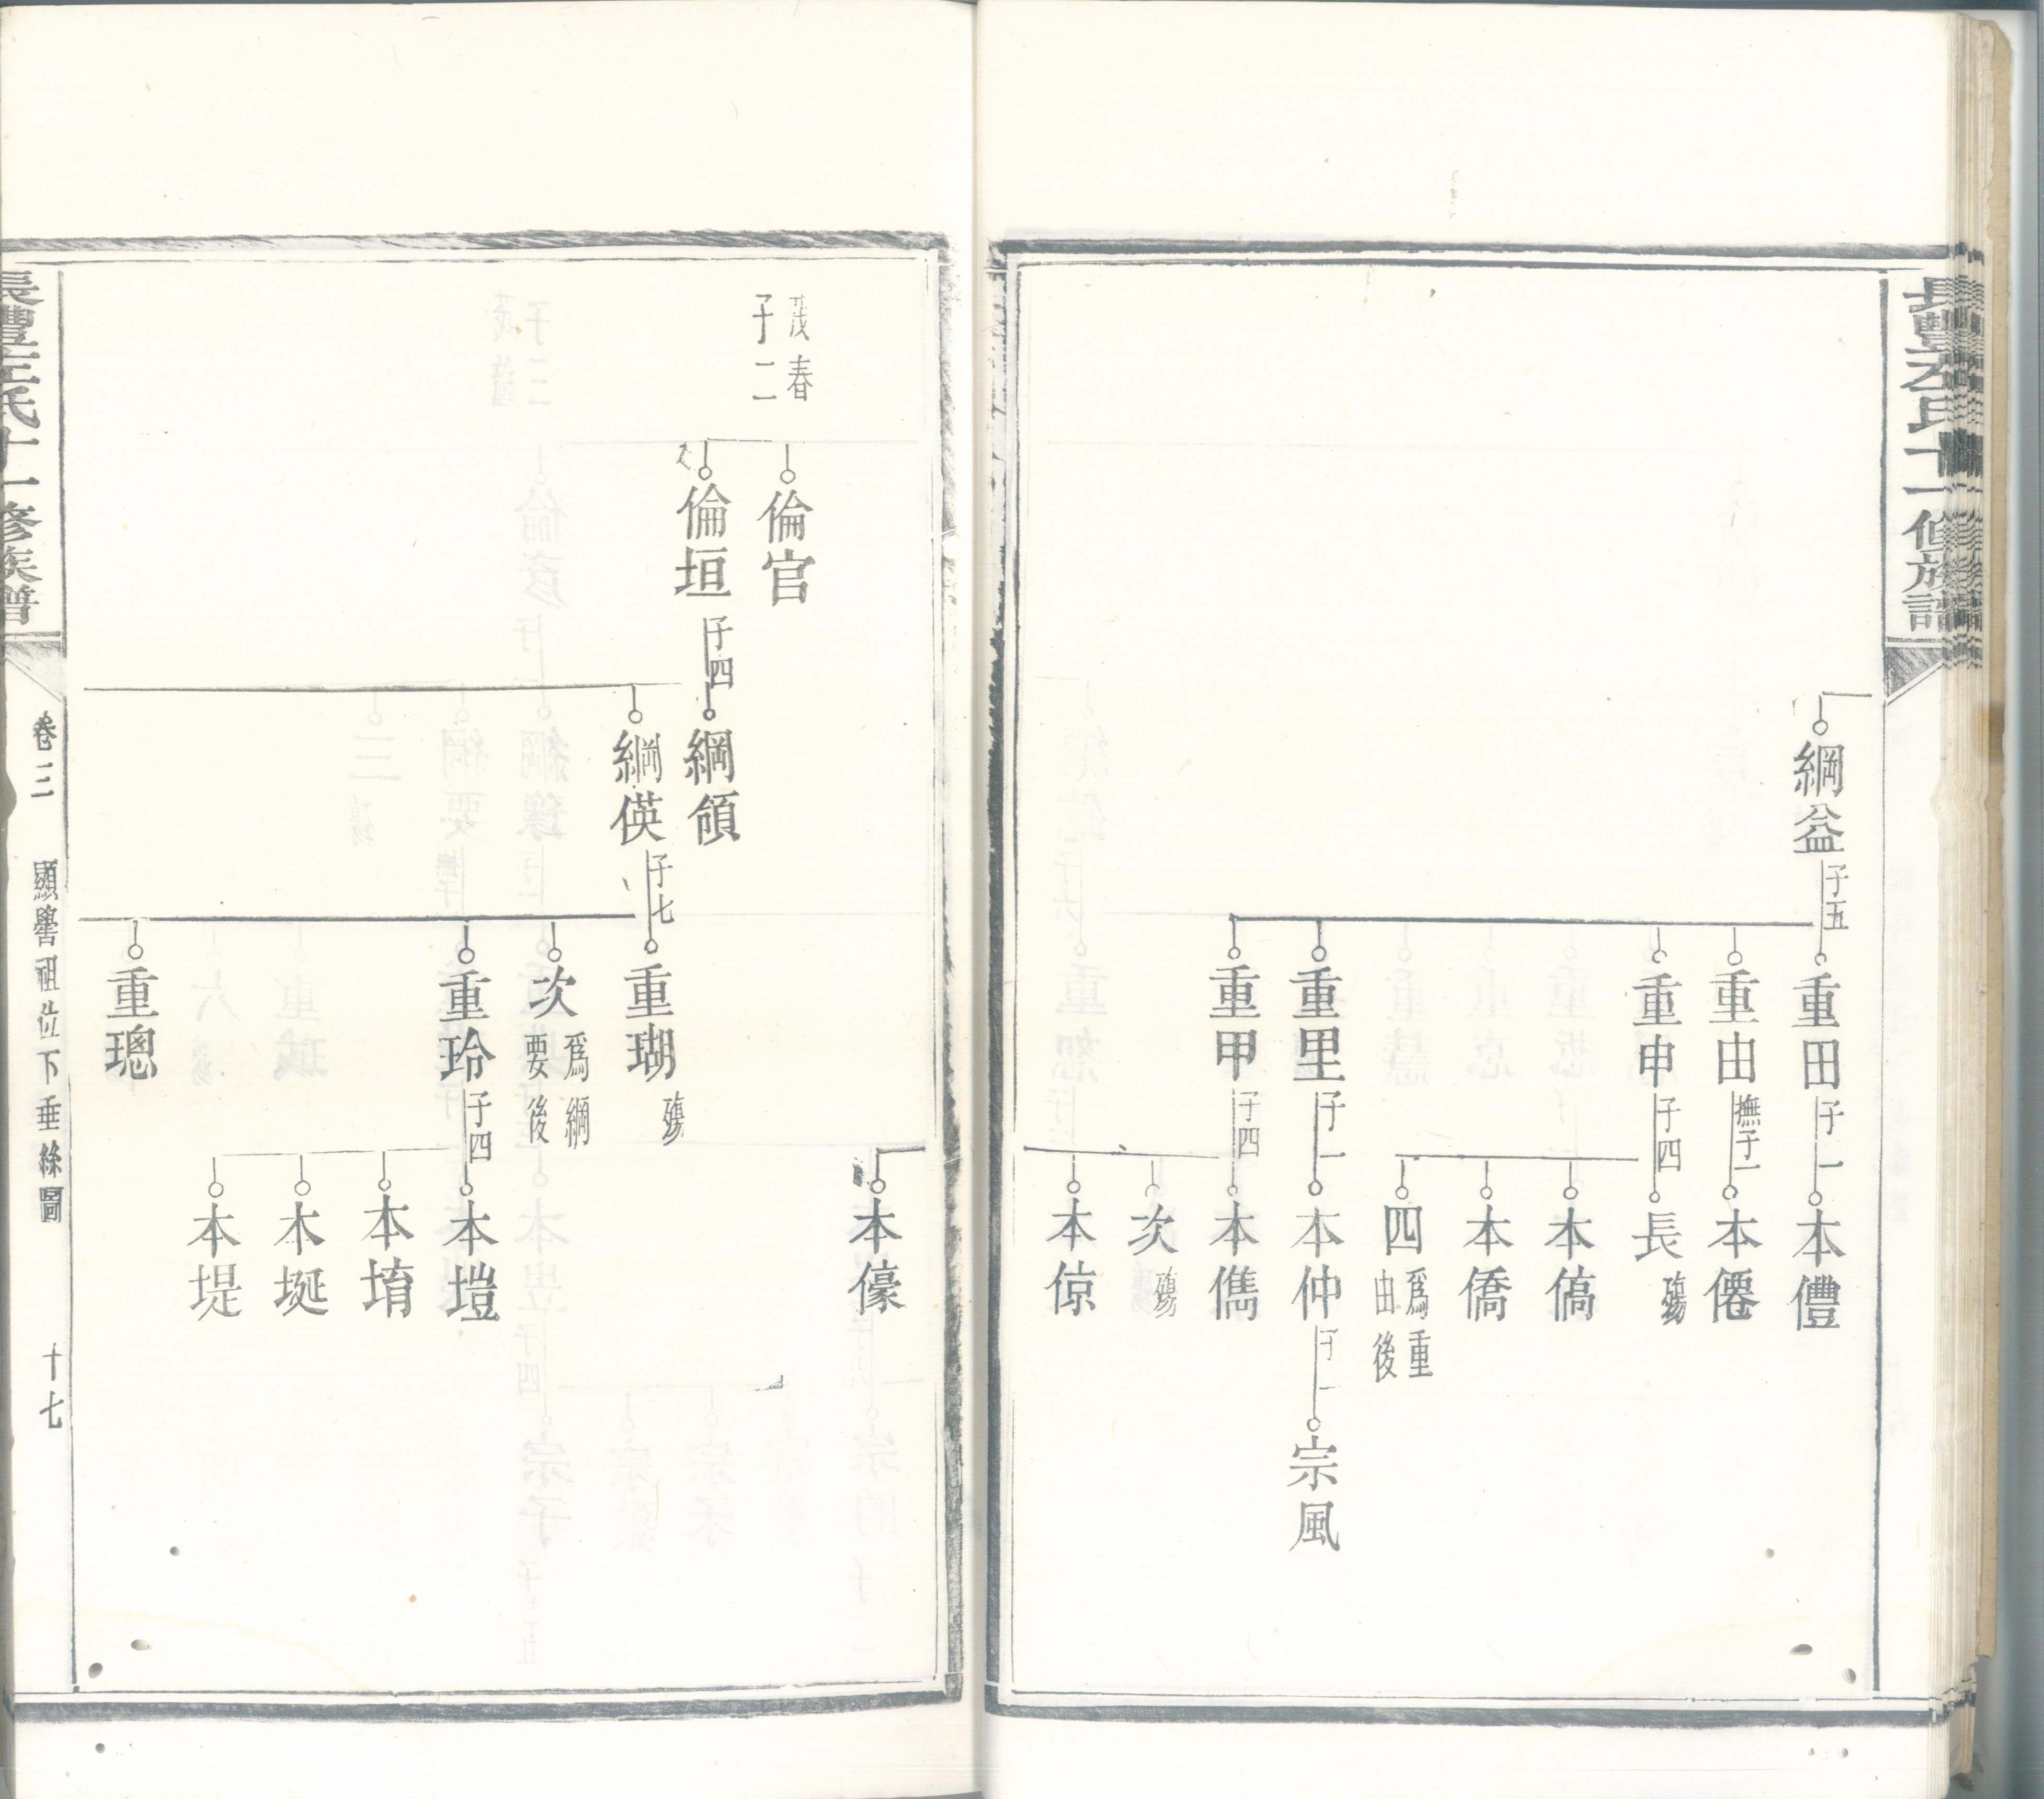 長豐左氏十一修族譜
綱益 子五
重田 子一
重由 撫子一
重申 子四
重里 子一
重甲 子四
本僼
本僊
長 殤
本傐
本僑
四 為重由後
本仲 子一
本儁
次 殤
本倞
宗風
茂春 子二
倫官
倫垣 子四
綱領
綱偀 子七
重瑚 殤
次 為綱要後
重玲 子四
重璁
本儫
本塏
本堉
本埏
本堤
長豐左氏十一修族譜
卷三
顯譽祖位下垂絲圖
十七